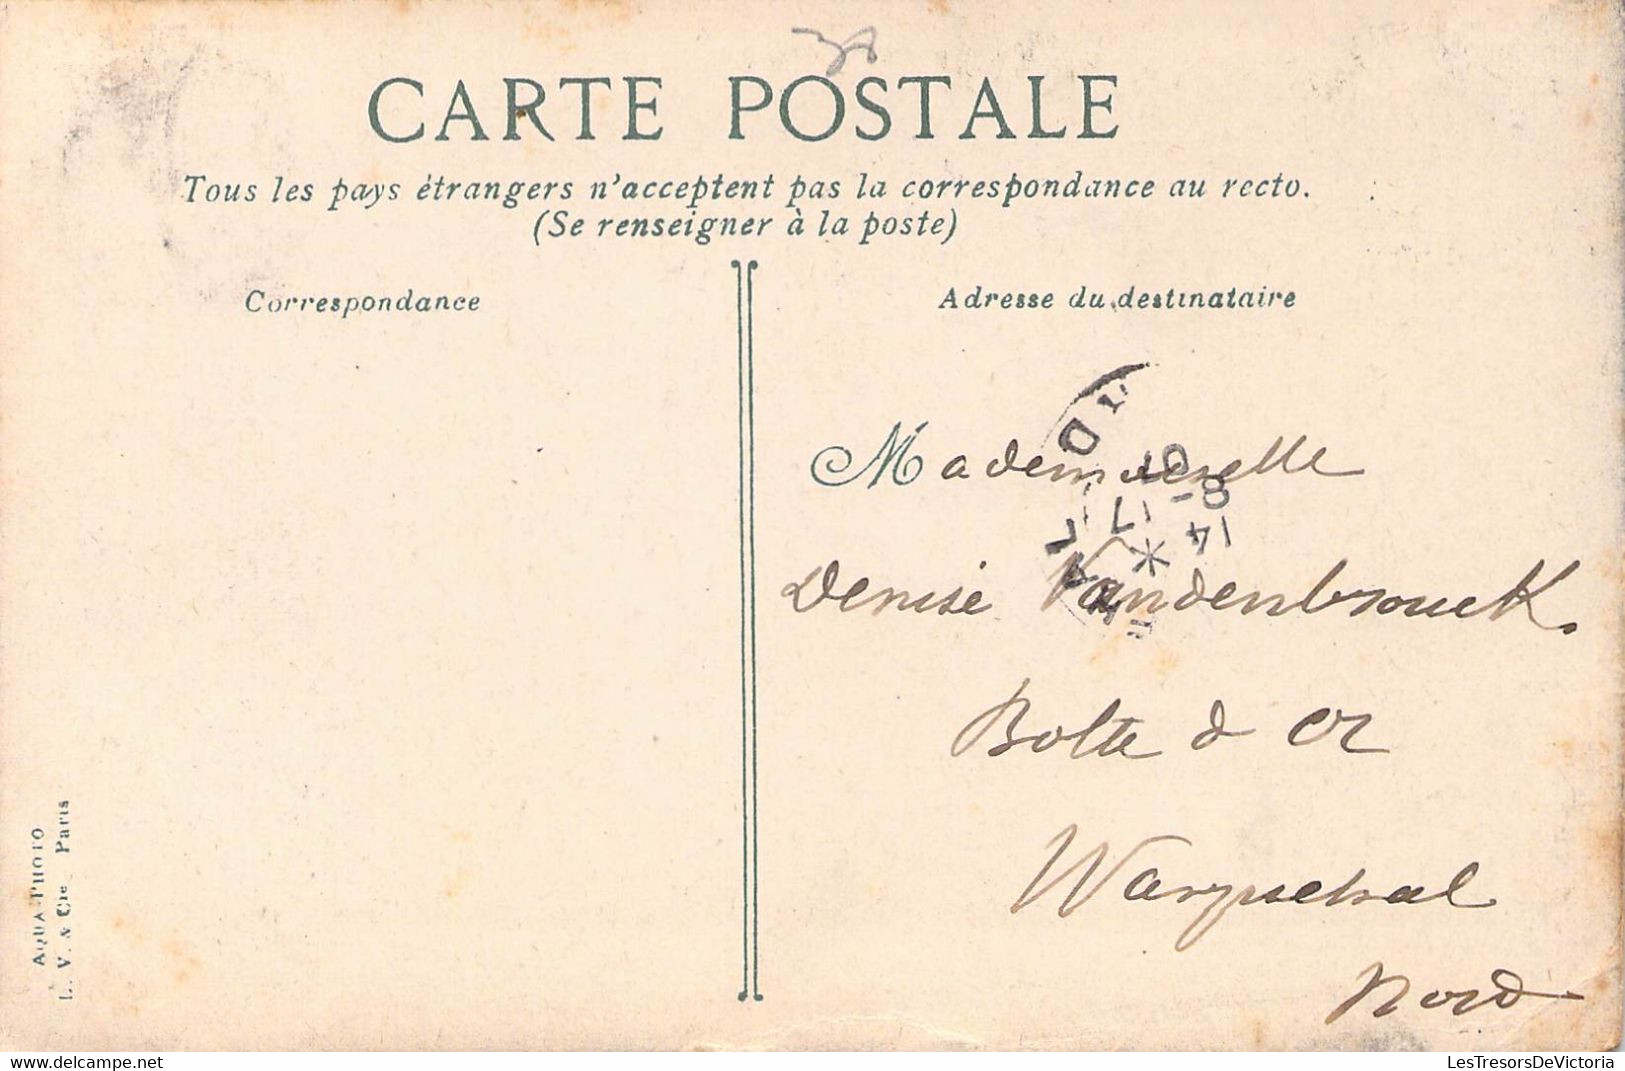 CARTE POSTALE
Tous les pays étrangers n'acceptent pas la correspondance au recto.
(Se renseigner à la poste)
Correspondance
Adresse du destinataire
Mademoiselle
Denise Vandenbrouck.
Botte d or
Warguehal
Nord
AQUA-PHOTO
L. V. & Cie Paris
14
8-
07
17
*
LesTresorsDeVictoria